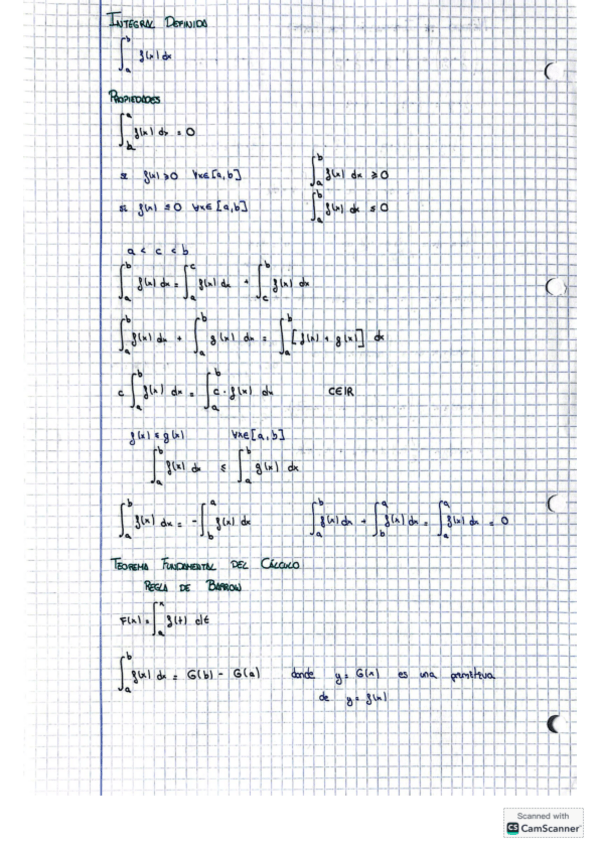 INTEGRAL DEFINIDA
∫_a^b f(x) dx
PROPIEDADES
f(x) dx = 0
SI f(x) ≥ 0 ∀x∈[a,b] ∫_a^b f(x) dx ≥ 0
SI f(x) ≤ 0 ∀x∈[a,b] ∫_a^b f(x) dx ≤ 0
a < c < b
∫_a^b f(x) dx = ∫_a^c f(x) dx + ∫_c^b f(x) dx
∫_a^b f(x) dx + ∫_a^b g(x) dx = ∫_a^b [f(x) + g(x)] dx
c ∫_a^b f(x) dx = ∫_a^b c · f(x) dx C∈ℝ
f(x) ≤ g(x) ∀x∈[a,b]
∫_a^b f(x) dx ≤ ∫_a^b g(x) dx
∫_a^b f(x) dx = -∫_b^a f(x) dx ∫_a^b f(x) dx + ∫_b^a f(x) dx = ∫_a^a f(x) dx = 0
TEOREMA FUNDAMENTAL DEL CÁLCULO
REGLA DE BARROW
F(x) = ∫_a^x f(t) dt
∫_a^b f(x) dx = G(b) - G(a) donde y = G(x) es una primitiva
de y = f(x)
Scanned with
CS CamScanner